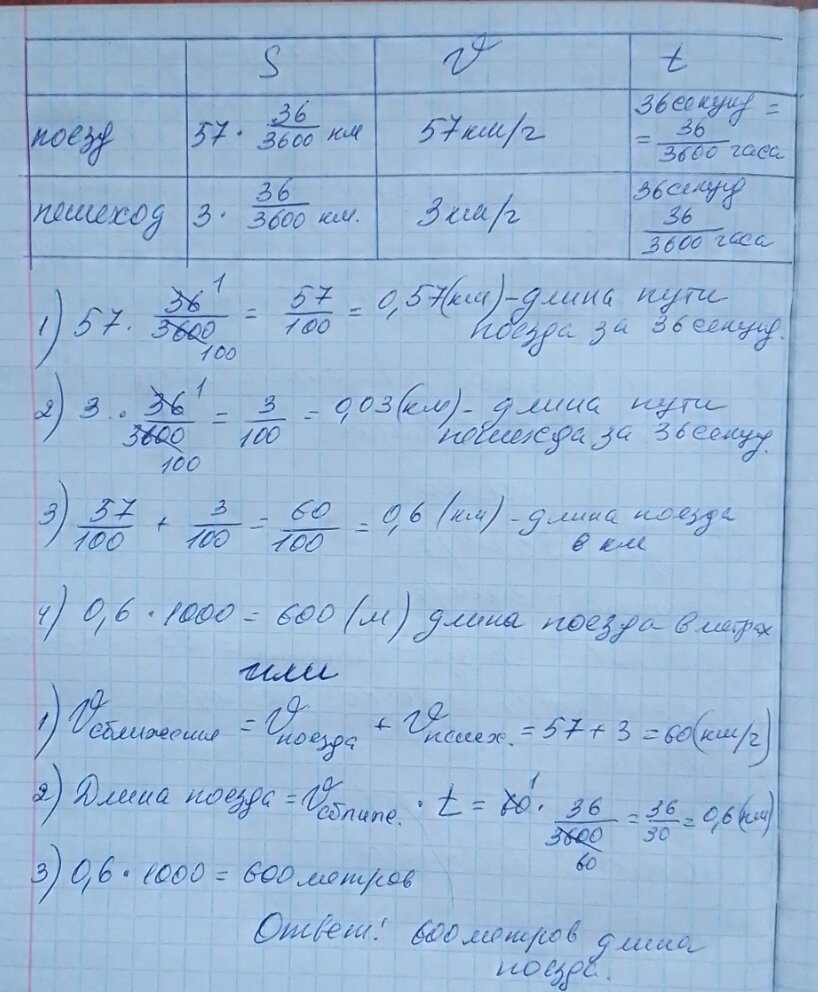 S v t
поезд 57 · 36/3600 км 57 км/ч 36 секунд = = 36/3600 часа
пешеход 3 · 36/3600 км. 3 км/ч 36 секунд 36/3600 часа
1) 57 · 36/3600 1 100 = 57/100 = 0,57 (км) - длина пути
поезда за 36 секунд.
2) 3 · 36/3600 1 100 = 3/100 = 0,03 (км) - длина пути
пешехда за 36 секунд.
3) 57/100 + 3/100 = 60/100 = 0,6 (км) - длина поезда
в км
4) 0,6 · 1000 = 600 (м) длина поезда в метрах
или
1) v сближения = v поезда + v пешех. = 57 + 3 = 60 (км/ч)
2) Длина поезда = v сближе. · t = 60 1 · 36/3600 60 = 36/30 = 0,6 (км)
3) 0,6 · 1000 = 600 метров
Ответ: 600 метров длина
поезда.